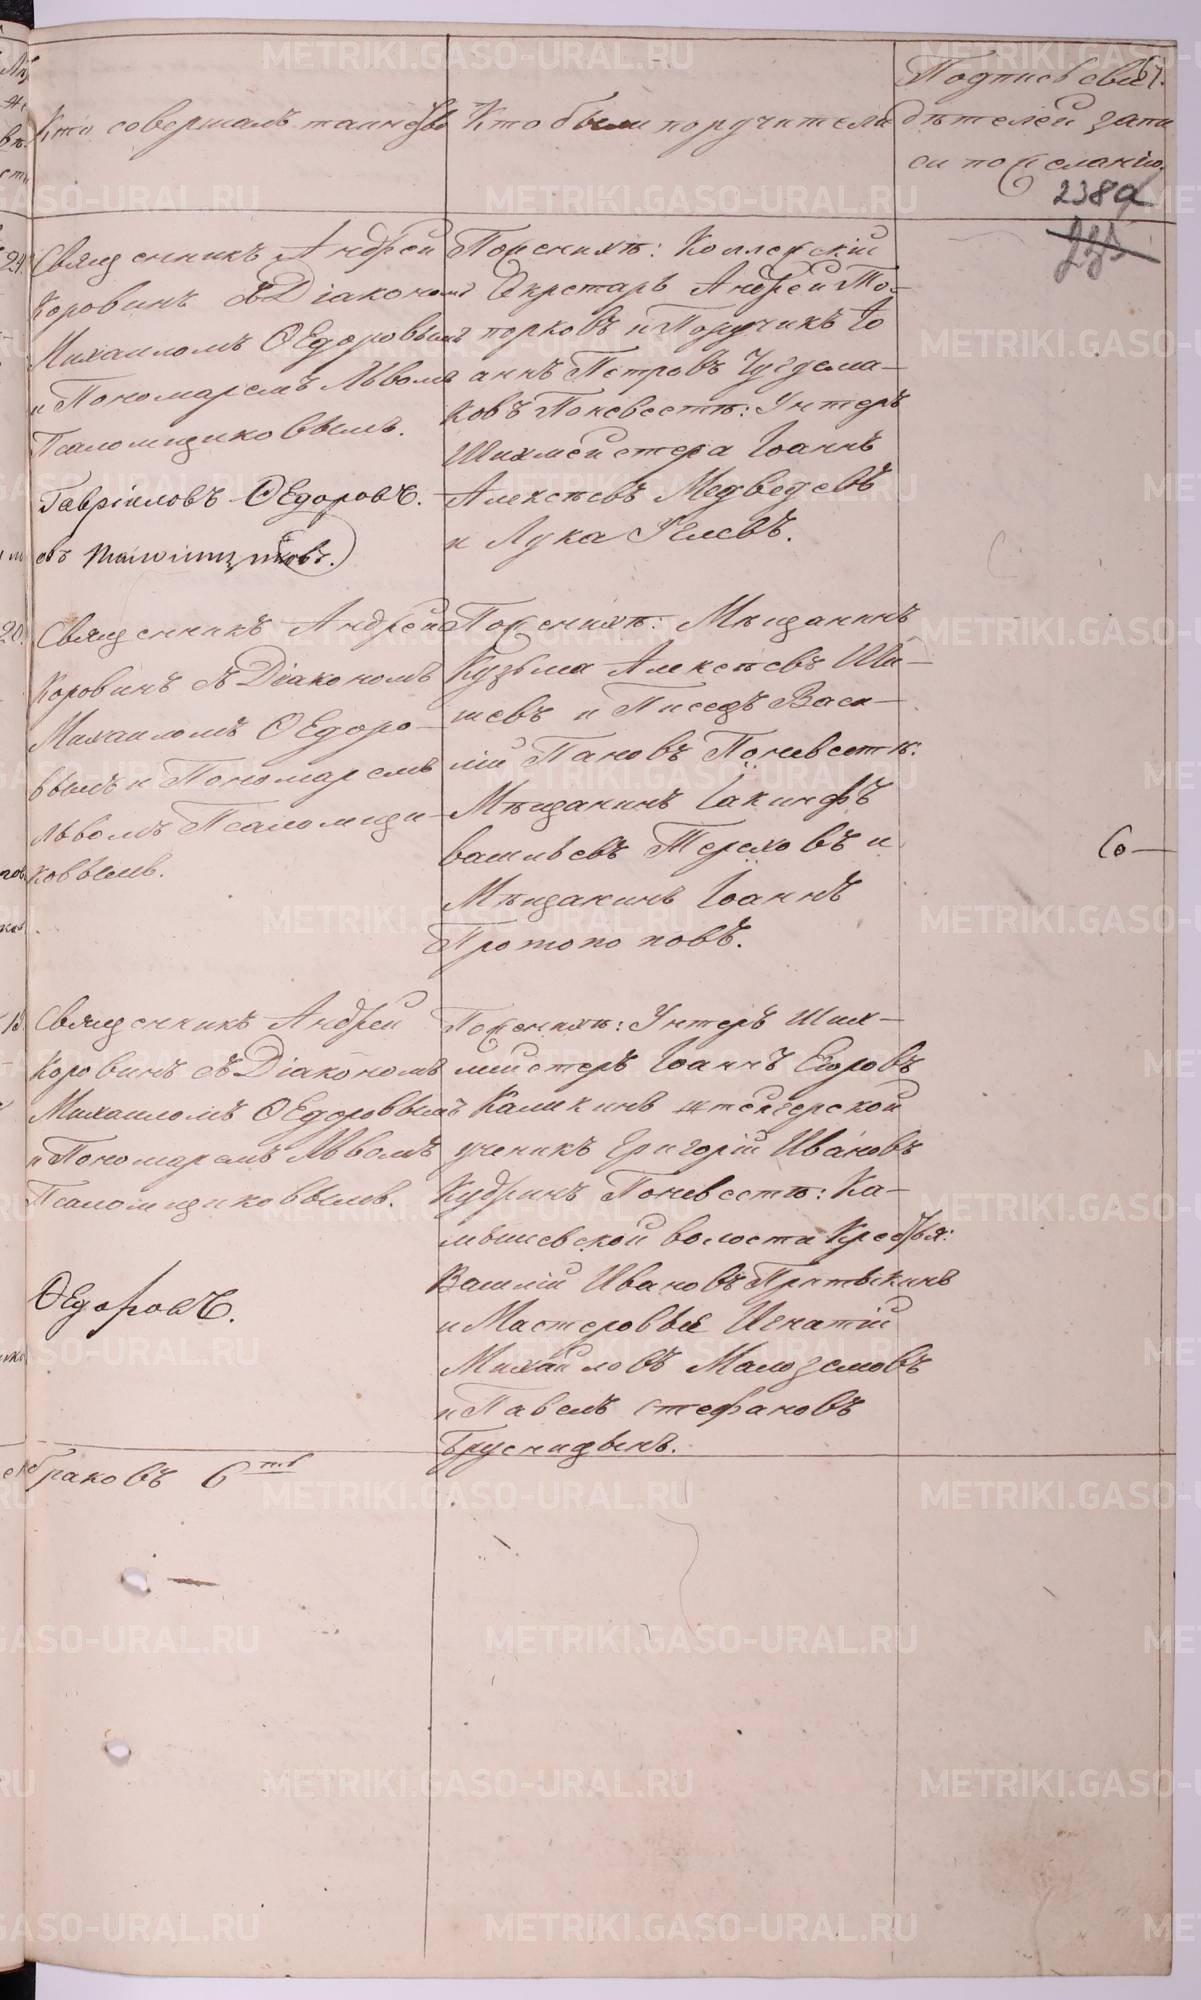 Кто совершалъ таинство
Кто были поручители
Подпись сви-
дѣтелей запи
си по желанію.
238а
Священникъ Андрей
Коровинъ съ Діакономъ
Михаиломъ Ѳедоровымъ
и Пономаремъ Львомъ
Псаломщиковымъ.
Гавріиловъ Ѳедоровъ.
Поженихѣ: Коллежскій
Секретарь Андрей То-
порковъ и Поручикъ Іо
аннъ Петровъ
ковъ Поневестѣ: Унтеръ
Шихмейстера Іоаннъ
Алексѣевъ Медведевъ
и Лука
Священникъ Андрей
Коровинъ съ Діакономъ
Михаиломъ Ѳедоро-
вымъ и Пономаремъ
Львомъ Псаломщи-
ковымъ.
Поженихѣ: Мѣщанинъ
Кузьма Алексѣевъ
и Писецъ Васи-
лій Пановъ Поневестѣ:
Мѣщанинъ Іакинфъ
васильевъ Тереховъ и
Мѣщанинъ Іоаннъ
Протопоповъ.
Со—
Священникъ Андрей
Коровинъ съ Діакономъ
Михаиломъ Ѳедоровымъ
и Пономаремъ Львомъ
Псаломщиковымъ.
Ѳедоровъ.
Поженихѣ: Унтеръ Ших-
мистеръ Іоаннъ Егоровъ
Каликинъ штейгерской
ученикъ Григорій Ивановъ
Кудринъ Поневестѣ: Ка-
мышевской волости Крестья:
Василій Ивановъ
и Мастеровые Игнатій
Михайловъ Малоземовъ
и Павелъ стефановъ
Брусницынъ.
браковъ 6